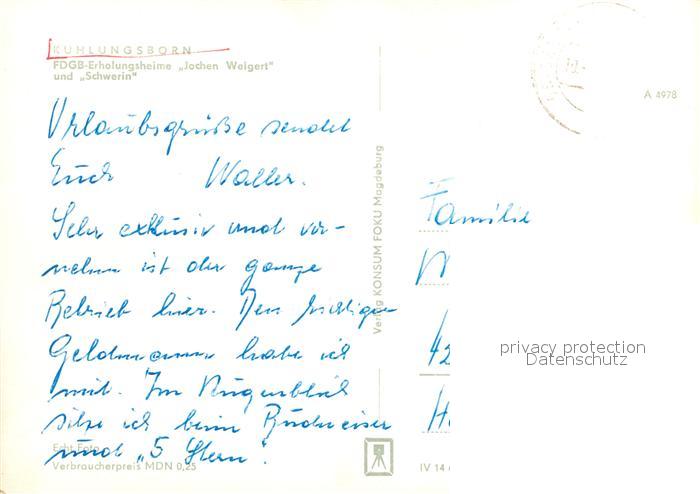 KÜHLUNGSBORN
FDGB-Erholungsheime „Jochen Weigert"
und „Schwerin"
A 4978
Urlaubsgrüße sendet
Euch Walter.
Sehr exklusiv und vor-
nehm ist der ganze
Betrieb hier. Den richtigen
Geldmann habe ich
mit. Im Augenblick
sitze ich beim Budweiser
und „5 Stern".
Echt Foto
Verbraucherpreis MDN 0,25
Verlag KONSUM FOKU Magdeburg
Familie
42
IV 14
privacy protection
Datenschutz